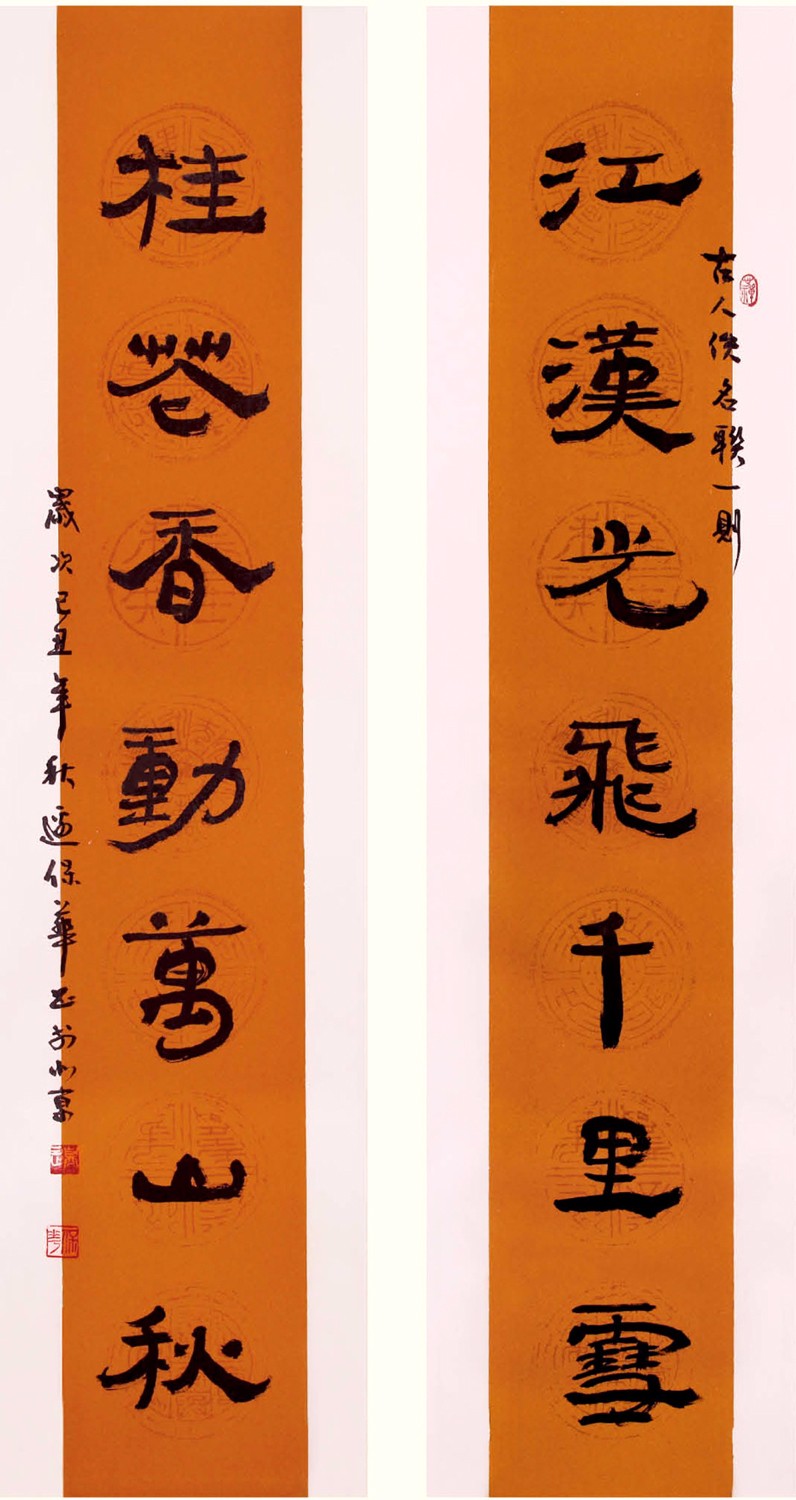 江漢光飛千里雪
古人佚名聯一則
桂花香動萬山秋
歲次己丑年秋 保華書於北京